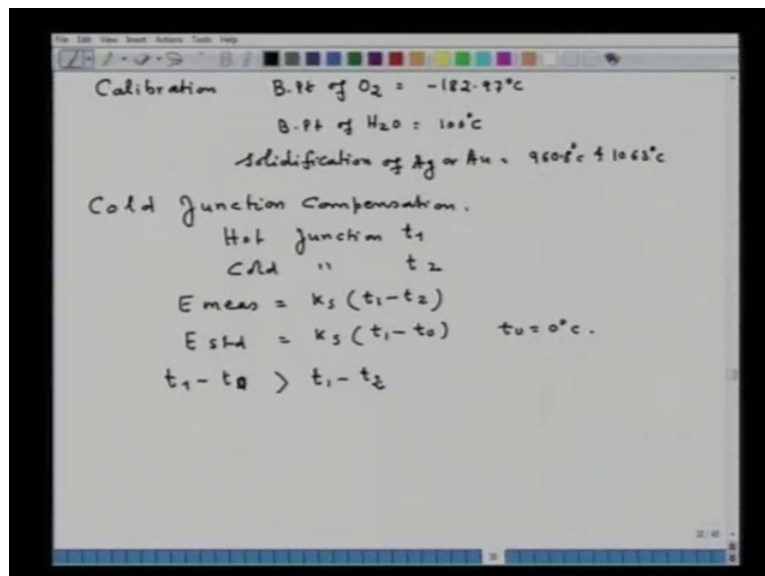 File Edit View Insert Actions Tools Help
Calibration B.Pt of O2 = -182.97°C
B.Pt of H2O = 100°C
Solidification of Ag or Au = 960.8°C & 1063°C
Cold Junction Compensation.
Hot Junction t1
Cold " t2
E meas = Ks (t1 - t2)
E std = Ks (t1 - t0) t0 = 0°C.
t1 - t0 > t1 - t2